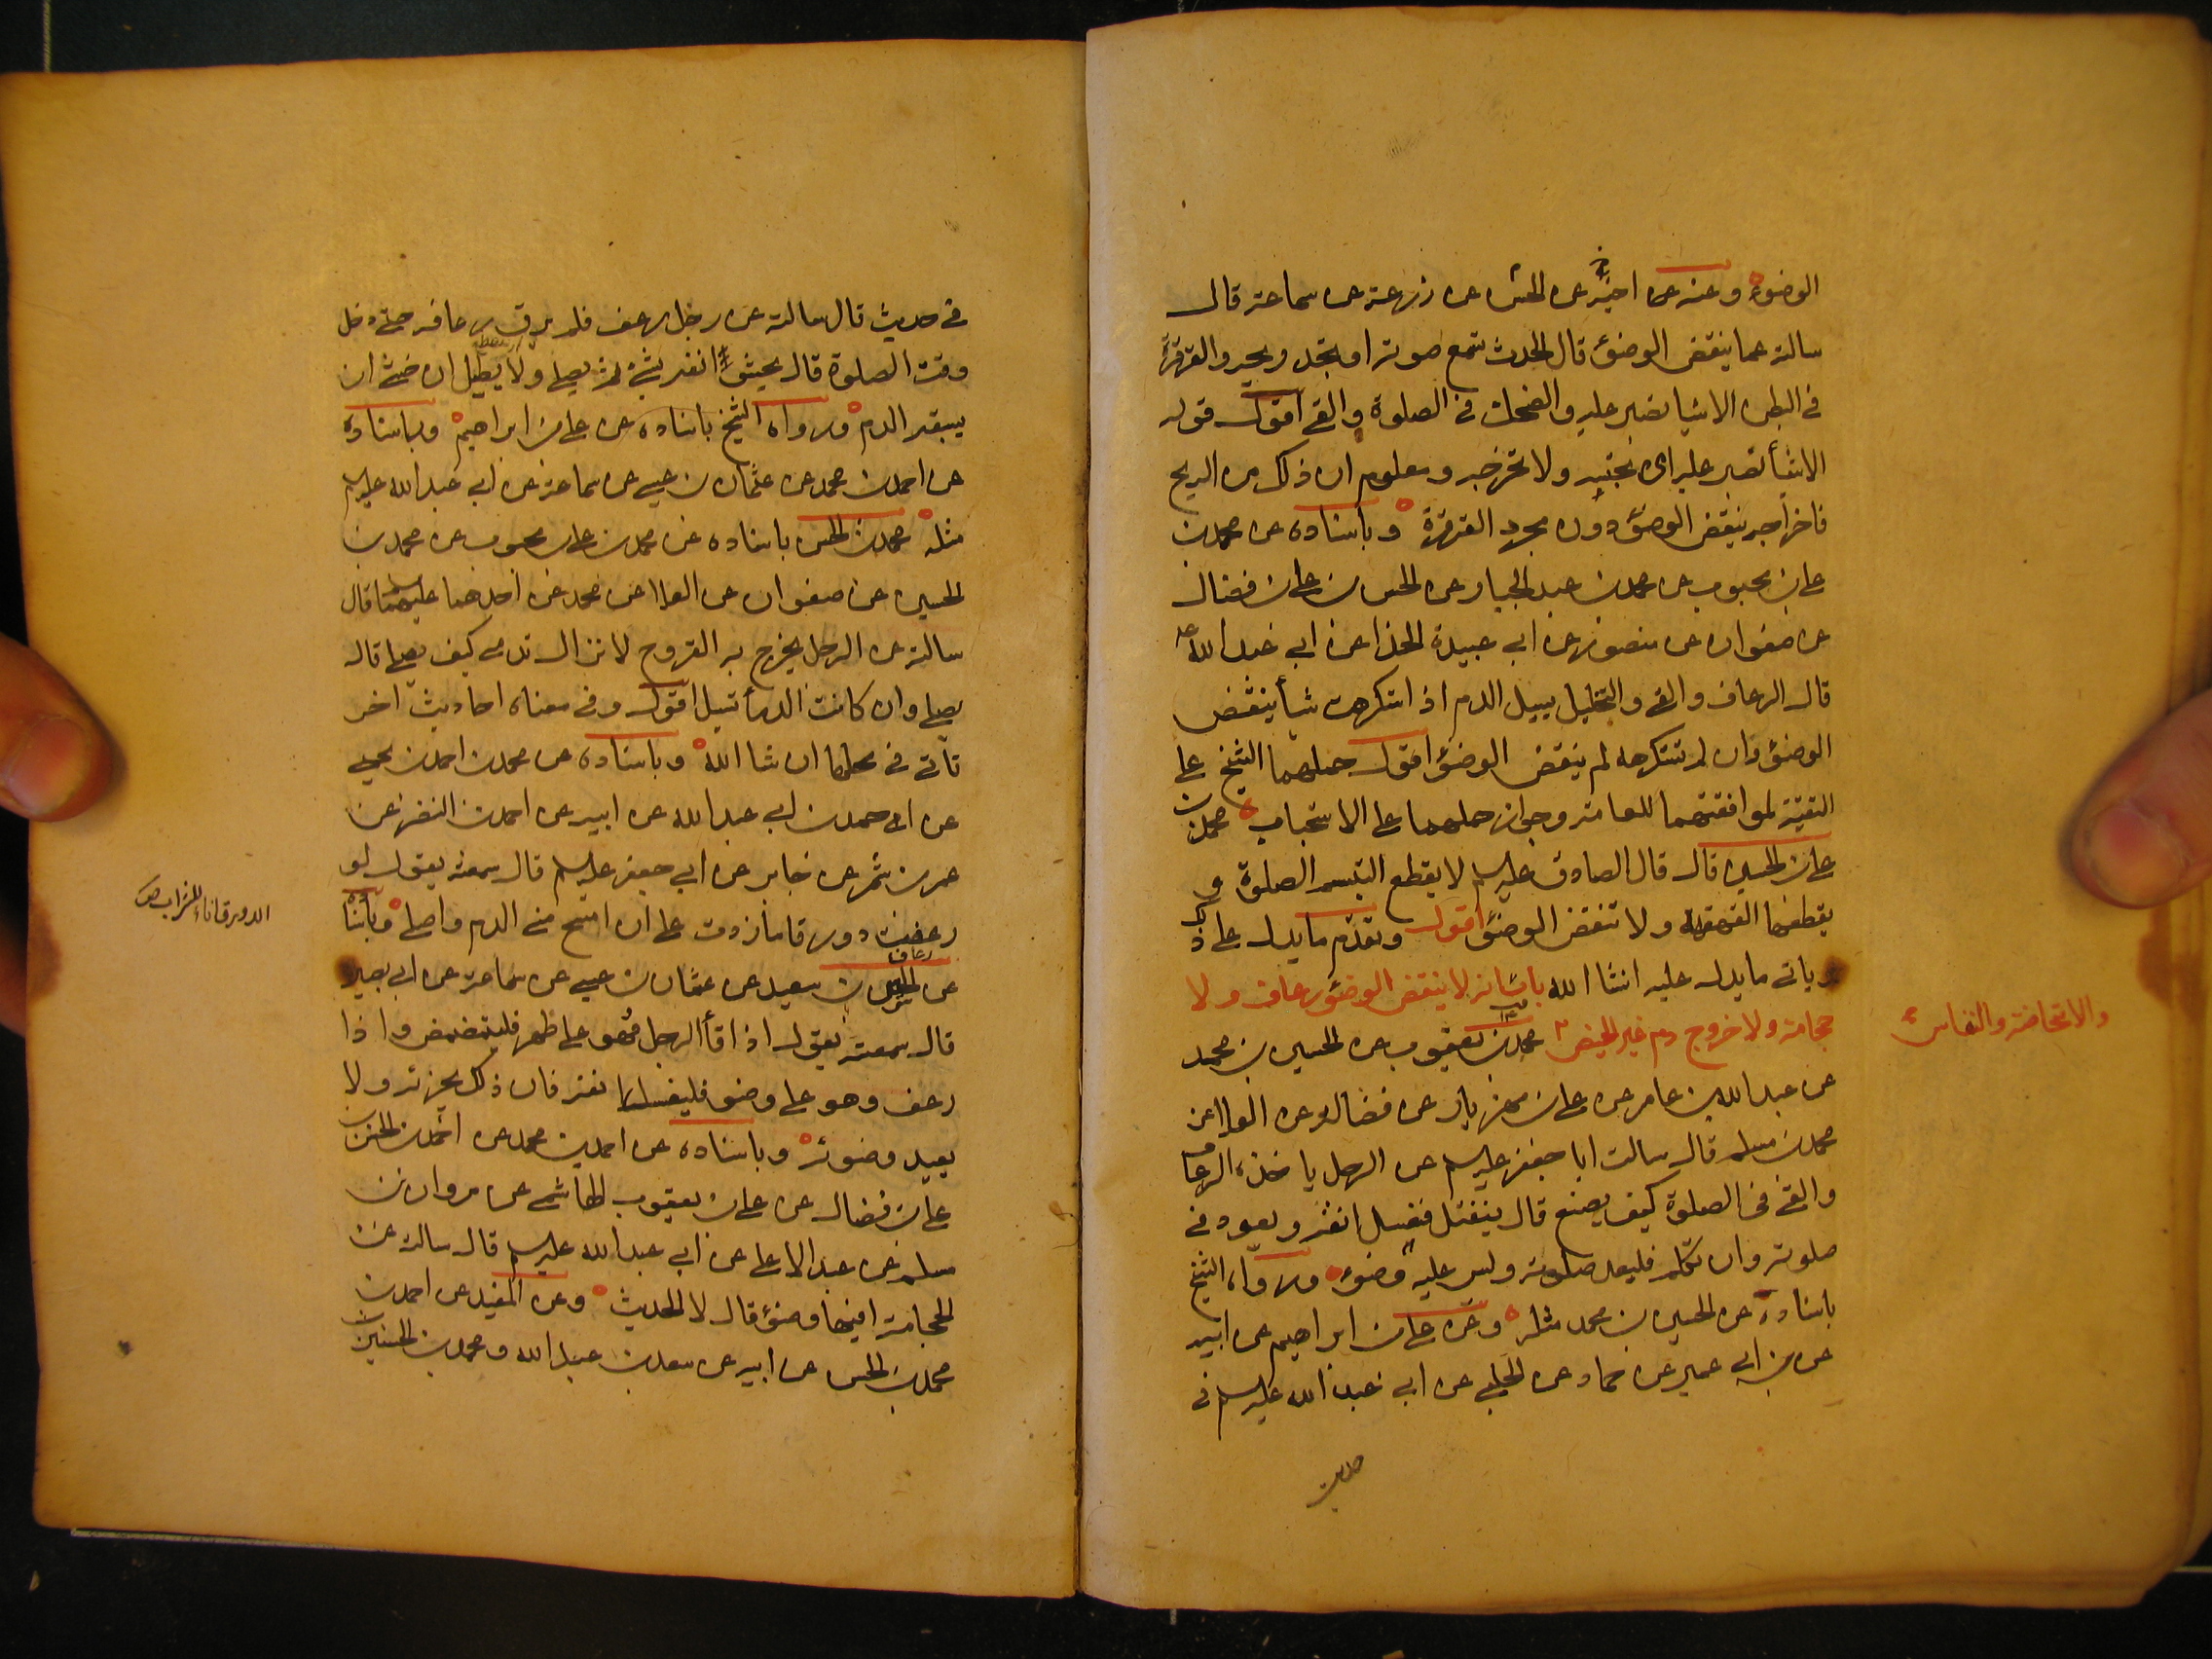 الوضوء وعنه عن اخيه عن الحسن عن زرعة عن سماعة قال
سالته عما ينقض الوضوء قال الحدث تسمع صوته او تجد ريحه والقرقرة
في البطن الا شيا تصبر عليه والضحك في الصلوة والقي اقول قوله
الا شيأ تصبر عليه اى تحتبسه ولا تخرجه ومعلوم ان ذلك من الريح
فاخراجه ينقض الوضوء دون مجرد القرقرة وباسناده عن محمد بن
علي بن محبوب عن محمد بن عبد الجبار عن الحسن بن علي بن فضال
عن صفوان عن منصور عن ابي عبيدة الحذا عن ابي عبد الله ع
قال الرعاف والقي والتخليل يسيل الدم اذا استكرهت شيأ ينقض
الوضوء وان لم تستكرهه لم ينقض الوضوء اقول حملهما الشيخ على
التقية لموافقتهما للعامة وجوز حملهما على الاستحباب محمد بن
علي بن الحسين قال قال الصادق عليه السلم لا يقطع التبسم الصلوة و
يقطعها القهقهة ولا تنقض الوضوء اقول وتقدم ما يدل على ذلك
وياتي ما يدل عليه انشا الله باب انه لا ينقض الوضوء رعاف ولا
حجامة ولا خروج دم غير الحيض محمد بن يعقوب عن الحسين بن محمد
والاستحاضة والنفاس
عن عبد الله بن عامر عن علي بن مهزيار عن فضالة عن العلا عن
محمد بن مسلم قال سالت ابا جعفر عليه السلم عن الرجل ياخذه الرعاف
والقي في الصلوة كيف يصنع قال ينفتل فيغسل انفه ويعود في
صلوته وان تكلم فليعد صلوته وليس عليه وضوء ورواه الشيخ
باسناده عن الحسين بن محمد مثله وعن علي بن ابراهيم عن ابيه
عن بن ابي عمير عن حماد عن الحلبي عن ابي عبد الله عليه السلم في
حديث
في حديث قال سالته عن رجل رعف فلم يرق رعافه حتى دخل
وقت الصلوة قال يحشو انفه بشي ثم يصلي ولا يطيل ان خشي ان
يسبقه الدم ورواه الشيخ باسناده عن علي بن ابراهيم وباسناده
عن احمد بن محمد عن عثمان بن عيسى عن سماعة عن ابي عبد الله عليه السلم
مثله محمد بن الحسن باسناده عن محمد بن علي بن محبوب عن محمد بن
الحسين عن صفوان عن العلا عن محمد عن احدهما عليهما السلم قال
سالته عن الرجل يخرج به القروح لا تزال تدمى كيف يصلي قال
يصلي وان كانت الدمأ تسيل اقول وفي معناه احاديث اخر
تاتي في محلها ان شا الله وباسناده عن محمد بن احمد بن يحيى
عن احمد بن ابي عبد الله عن ابيه عن احمد بن النضر عن
عمرو بن شمر عن جابر عن ابي جعفر عليه السلم قال سمعته يقول لو
رعفت دورقا ما زدت على ان امسح مني الدم واصلي وباسناده
الدورق اناء للشراب ص
عن الحسين بن سعيد عن عثمان بن عيسى عن سماعة عن ابي بصير
قال سمعته يقول اذا قأ الرجل وهو على طهر فليتمضمض واذا
رعف وهو على وضوء فليغسل انفه فان ذلك يجزئه ولا
يعيد وضوئه وباسناده عن احمد بن محمد عن احمد بن الحسن بن
علي بن فضال عن علي بن يعقوب الهاشمي عن مروان بن
مسلم عن عبد الاعلى عن ابي عبد الله عليه السلم قال سالته عن
الحجامة افيها وضوء قال لا الحديث وعن المفيد عن احمد بن
محمد بن الحسن عن ابيه عن سعد بن عبد الله ومحمد بن الحسن عن